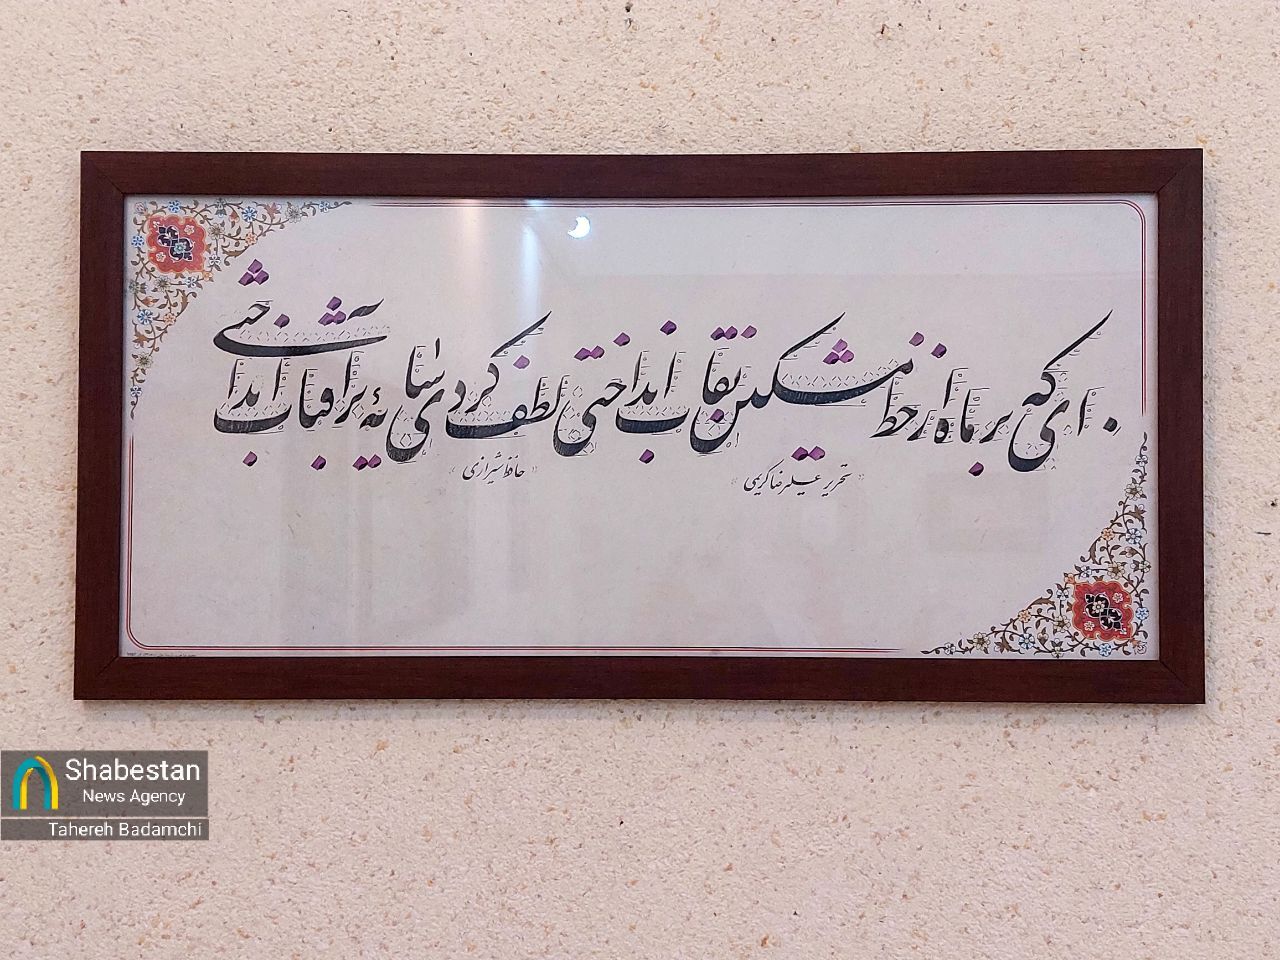 ای که بر ماه از خط مشکین نقاب انداختی لطف کردی سایهٔ بر آفتاب انداختی
تحریر علیرضا کریمی
حافظ شیرازی
Shabestan
News Agency
Tahereh Badamchi